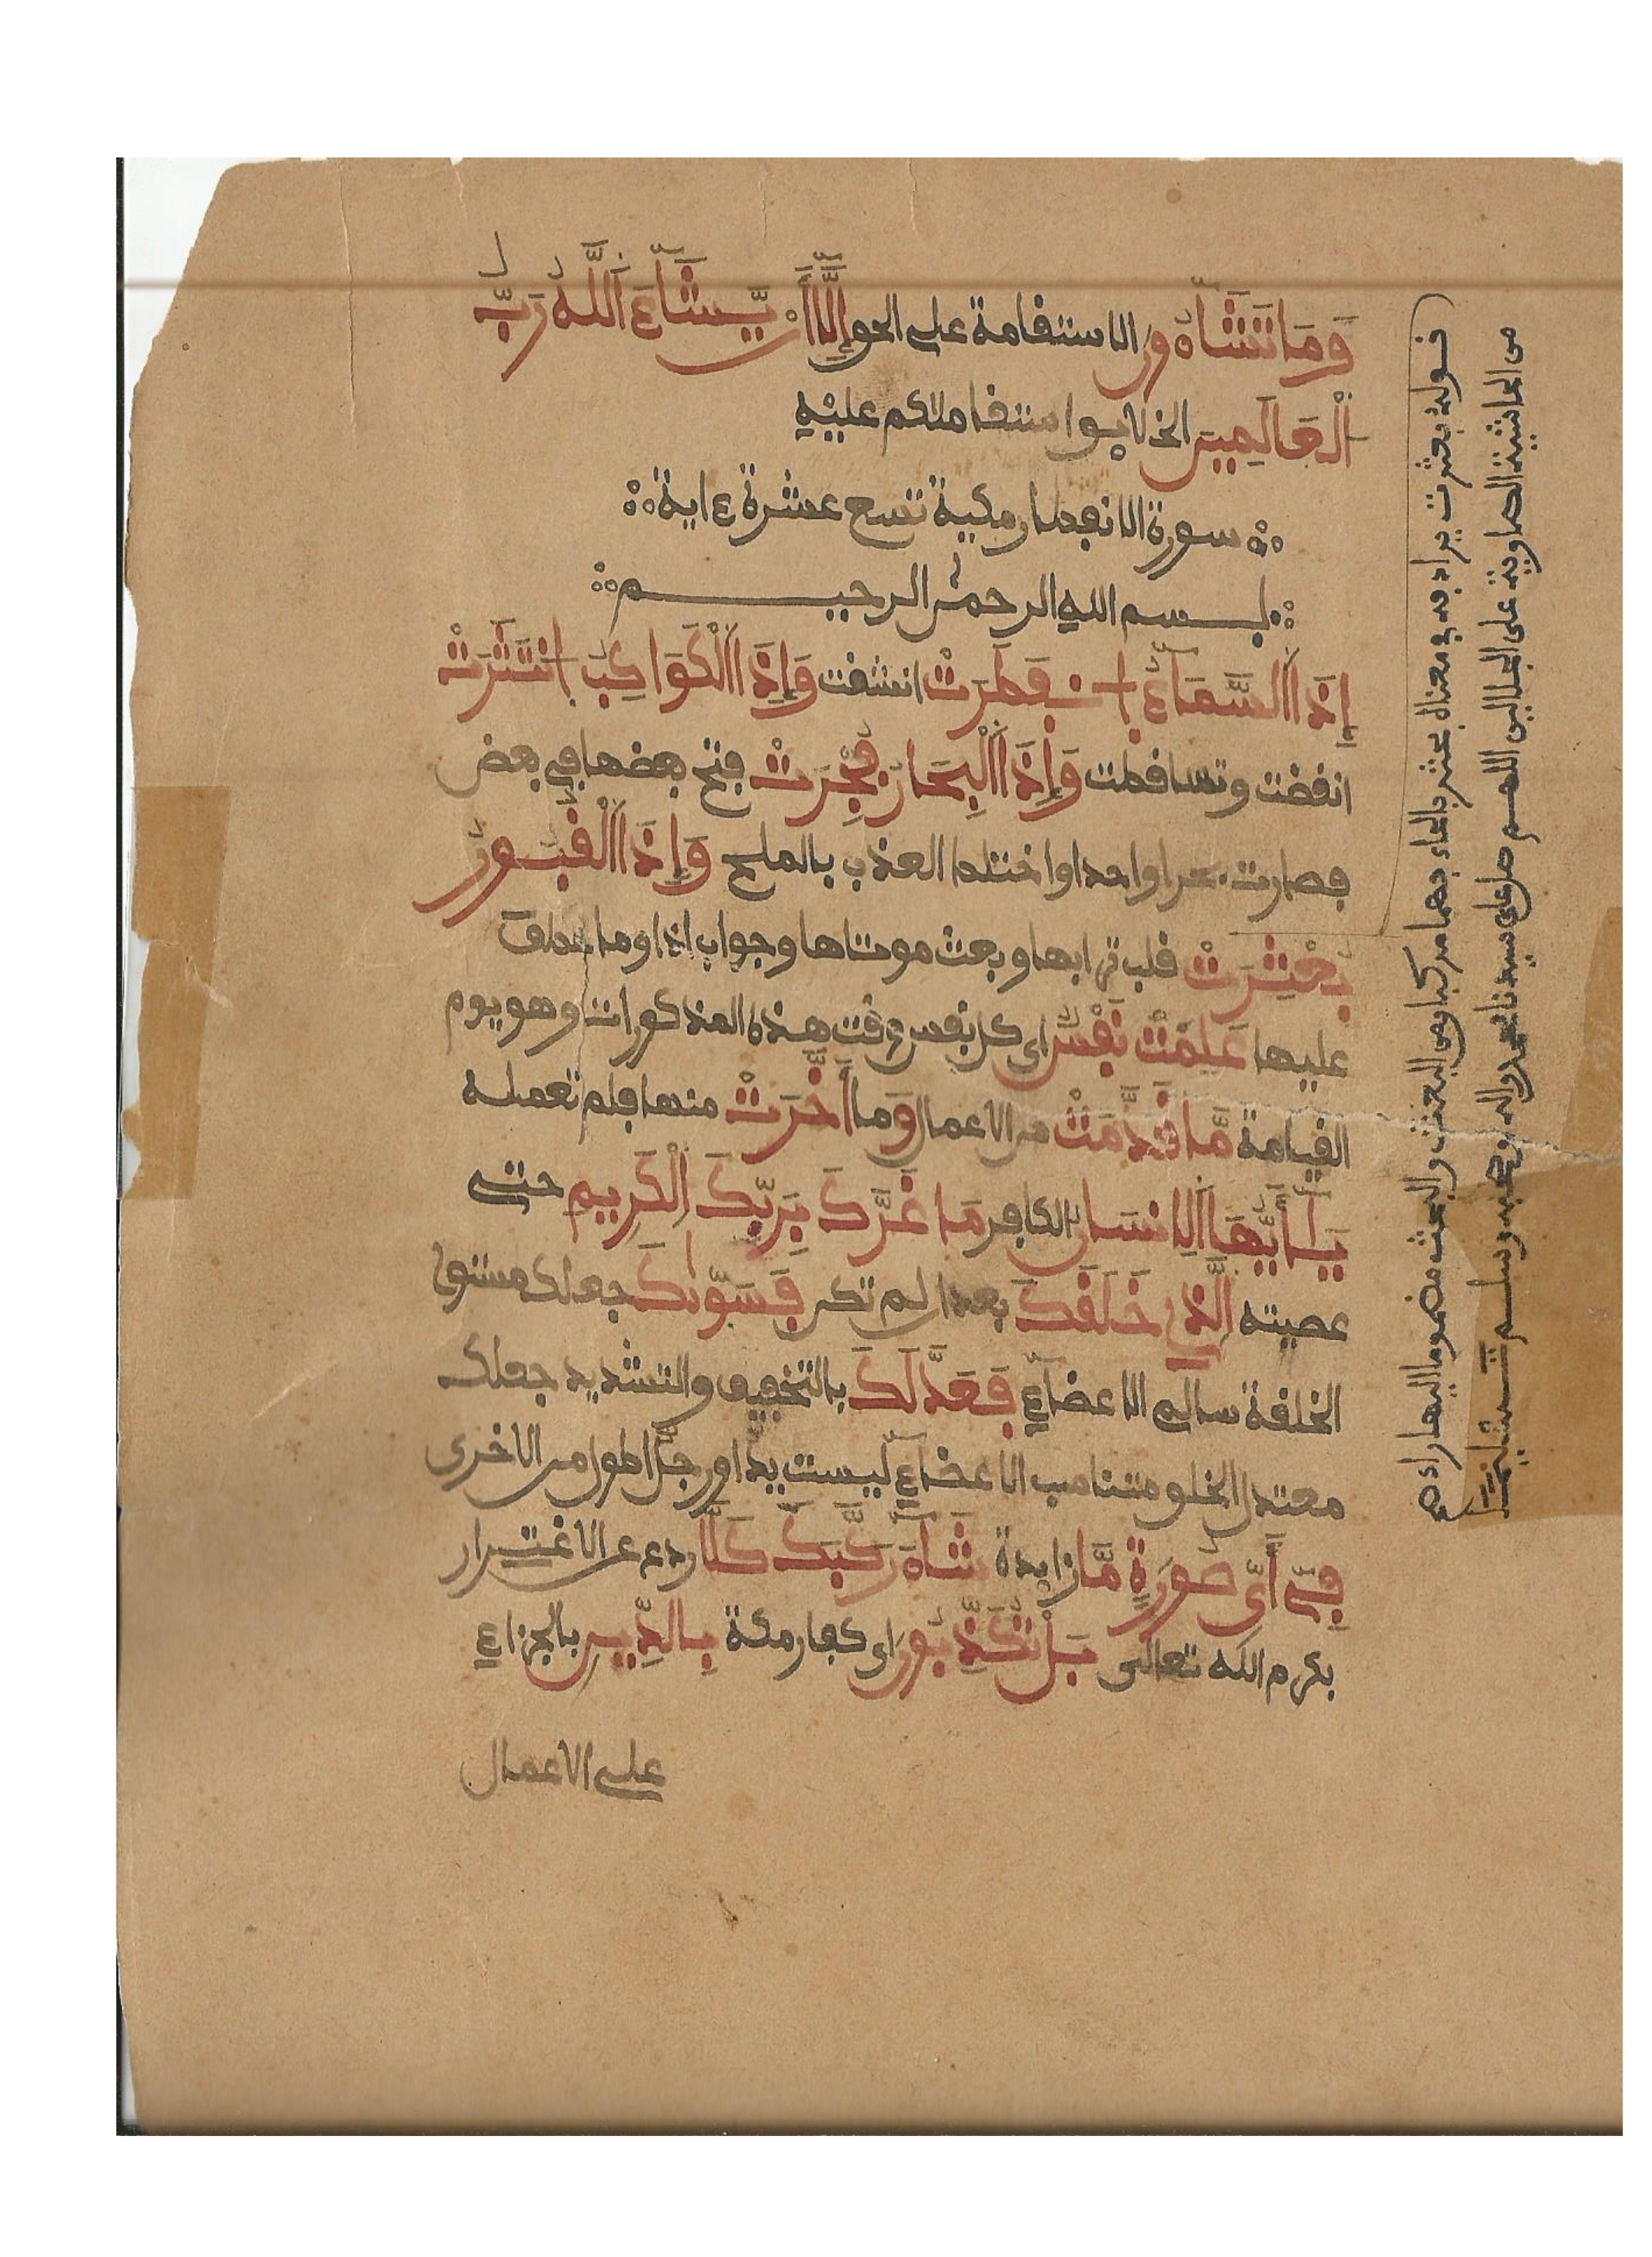 وَمَا تَشَآءُونَ الاستقامة على الحق إِلَّا أَنْ يَّشَآءَ اَللَّهُ رَبُّ
اْلْعَالَمِينَ الخلايق استقامتكم عليه
سورة الانفطار مكية تسع عشرة ءاية
بسم الله الرحمن الرحيم
إِذَا اَلسَّمَآءُ اُنفَطَرَتْ انشقت وَإِذَا اَلْكَوَاكِبُ اُنتَثَرَتْ
انقضت وتساقطت وَإِذَا اَلْبِحَارُ فُجِّرَتْ فتح بعضها في بعض
فصارت بحرا واحدا واختلط العذب بالملح وَإِذَا اَلْقُبُورُ
بُعْثِرَتْ قلب ترابها وبعث موتاها وجواب اذا وما عطف
عليها عَلِمَتْ نَفْسٌ اى كل نفس وقت هذه المذكورات وهو يوم
القيامة مَّا قَدَّمَتْ من الاعمال وَمَا أَخَّرَتْ منها فلم تعمله
يَـٰٓأَيُّهَا اَلِانسَانُ الكافر مَا غَرَّكَ بِرَبِّكَ اَلْكَرِيمِ حتى
عصيته اَلَّذِى خَلَقَكَ بعد ان لم تكن فَسَوَّىٰكَ جعلك مستوى
الخلقة سالم الاعضآء فَعَدَّلَكَ بالتخفيف والتشديد جعلك
معتدل الخلق متناسب الاعضآء ليست يد او رجل اطول من الاخرى
فِىٓ أَىِّ صُورَةٍ مَّا زايدة شَآءَ رَكَّبَكَ كَلَّا ردع عن الاغترار
بكرم الله تعالى بَلْ تُكَذِّبُونَ اى كفار مكة بِالدِّينِ بالجزاء
على الاعمال
قوله بعثرت يراد به في معناه بحثر بالحاء وهما مركبا من البعث والبحث مضموما اليها راء اه
من الحاشية الصاوية على الجلالين اللهم صل على سيدنا محمد واله وصحبه وسلم تسليما